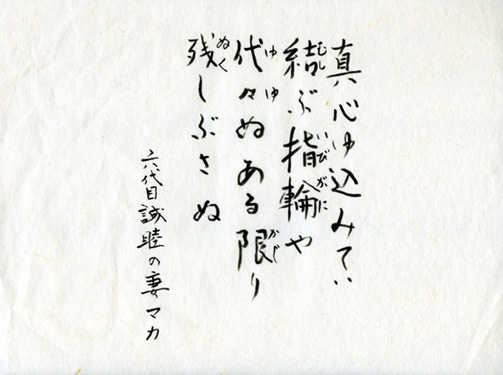 真心ゆ込みてぃ
結ぶ指輪や
代々ぬある限り
残しぶさぬ
六代目誠睦の妻マカ